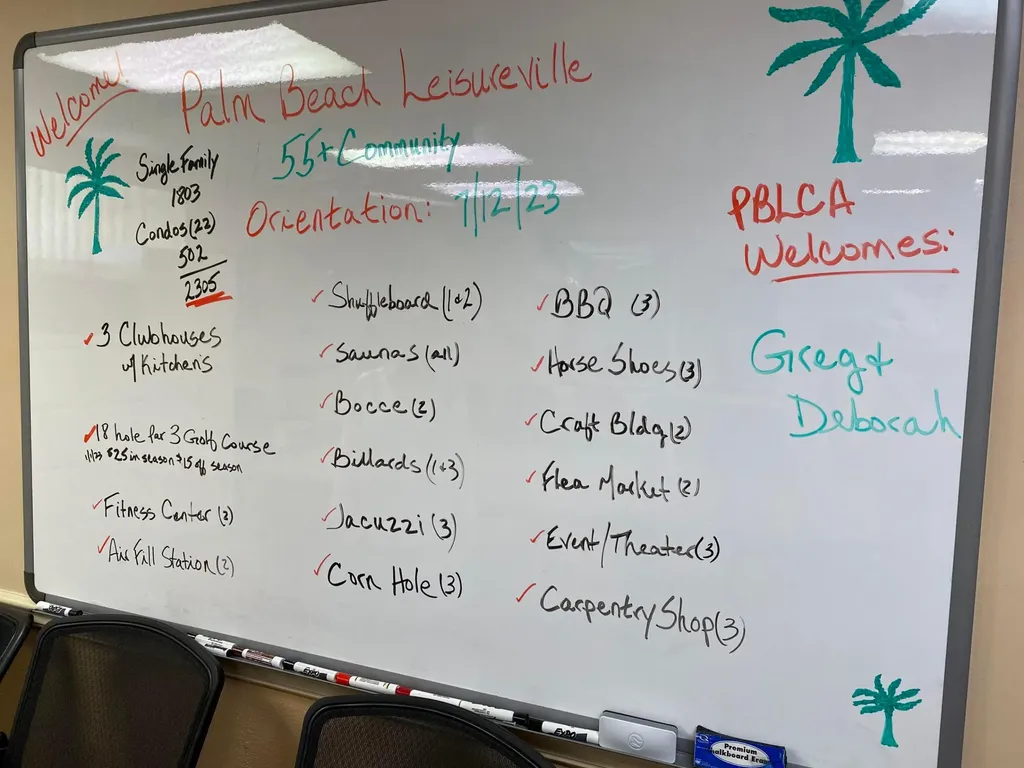 Welcome!
Palm Beach Leisureville
55+ Community
Orientation: 7/12/23
Single Family
1803
Condos (22)
502
2305
✓3 Clubhouses
w/ Kitchen's
✓18 hole Par 3 Golf Course
$25 in season $15 off season
✓Fitness Center (3)
✓Air Fill Station (2)
✓Shuffleboard (1+2)
✓Saunas (all)
✓Bocce (2)
✓Billards (1+3)
✓Jacuzzi (3)
✓Corn Hole (3)
✓BBQ (3)
✓Horse Shoes (3)
✓Craft Bldg (2)
✓Flea Market (2)
✓Event/Theater (3)
✓Carpentry Shop (3)
PBLCA
Welcomes:
Greg +
Deborah
EXPO
EXPO
EXPO
Premium